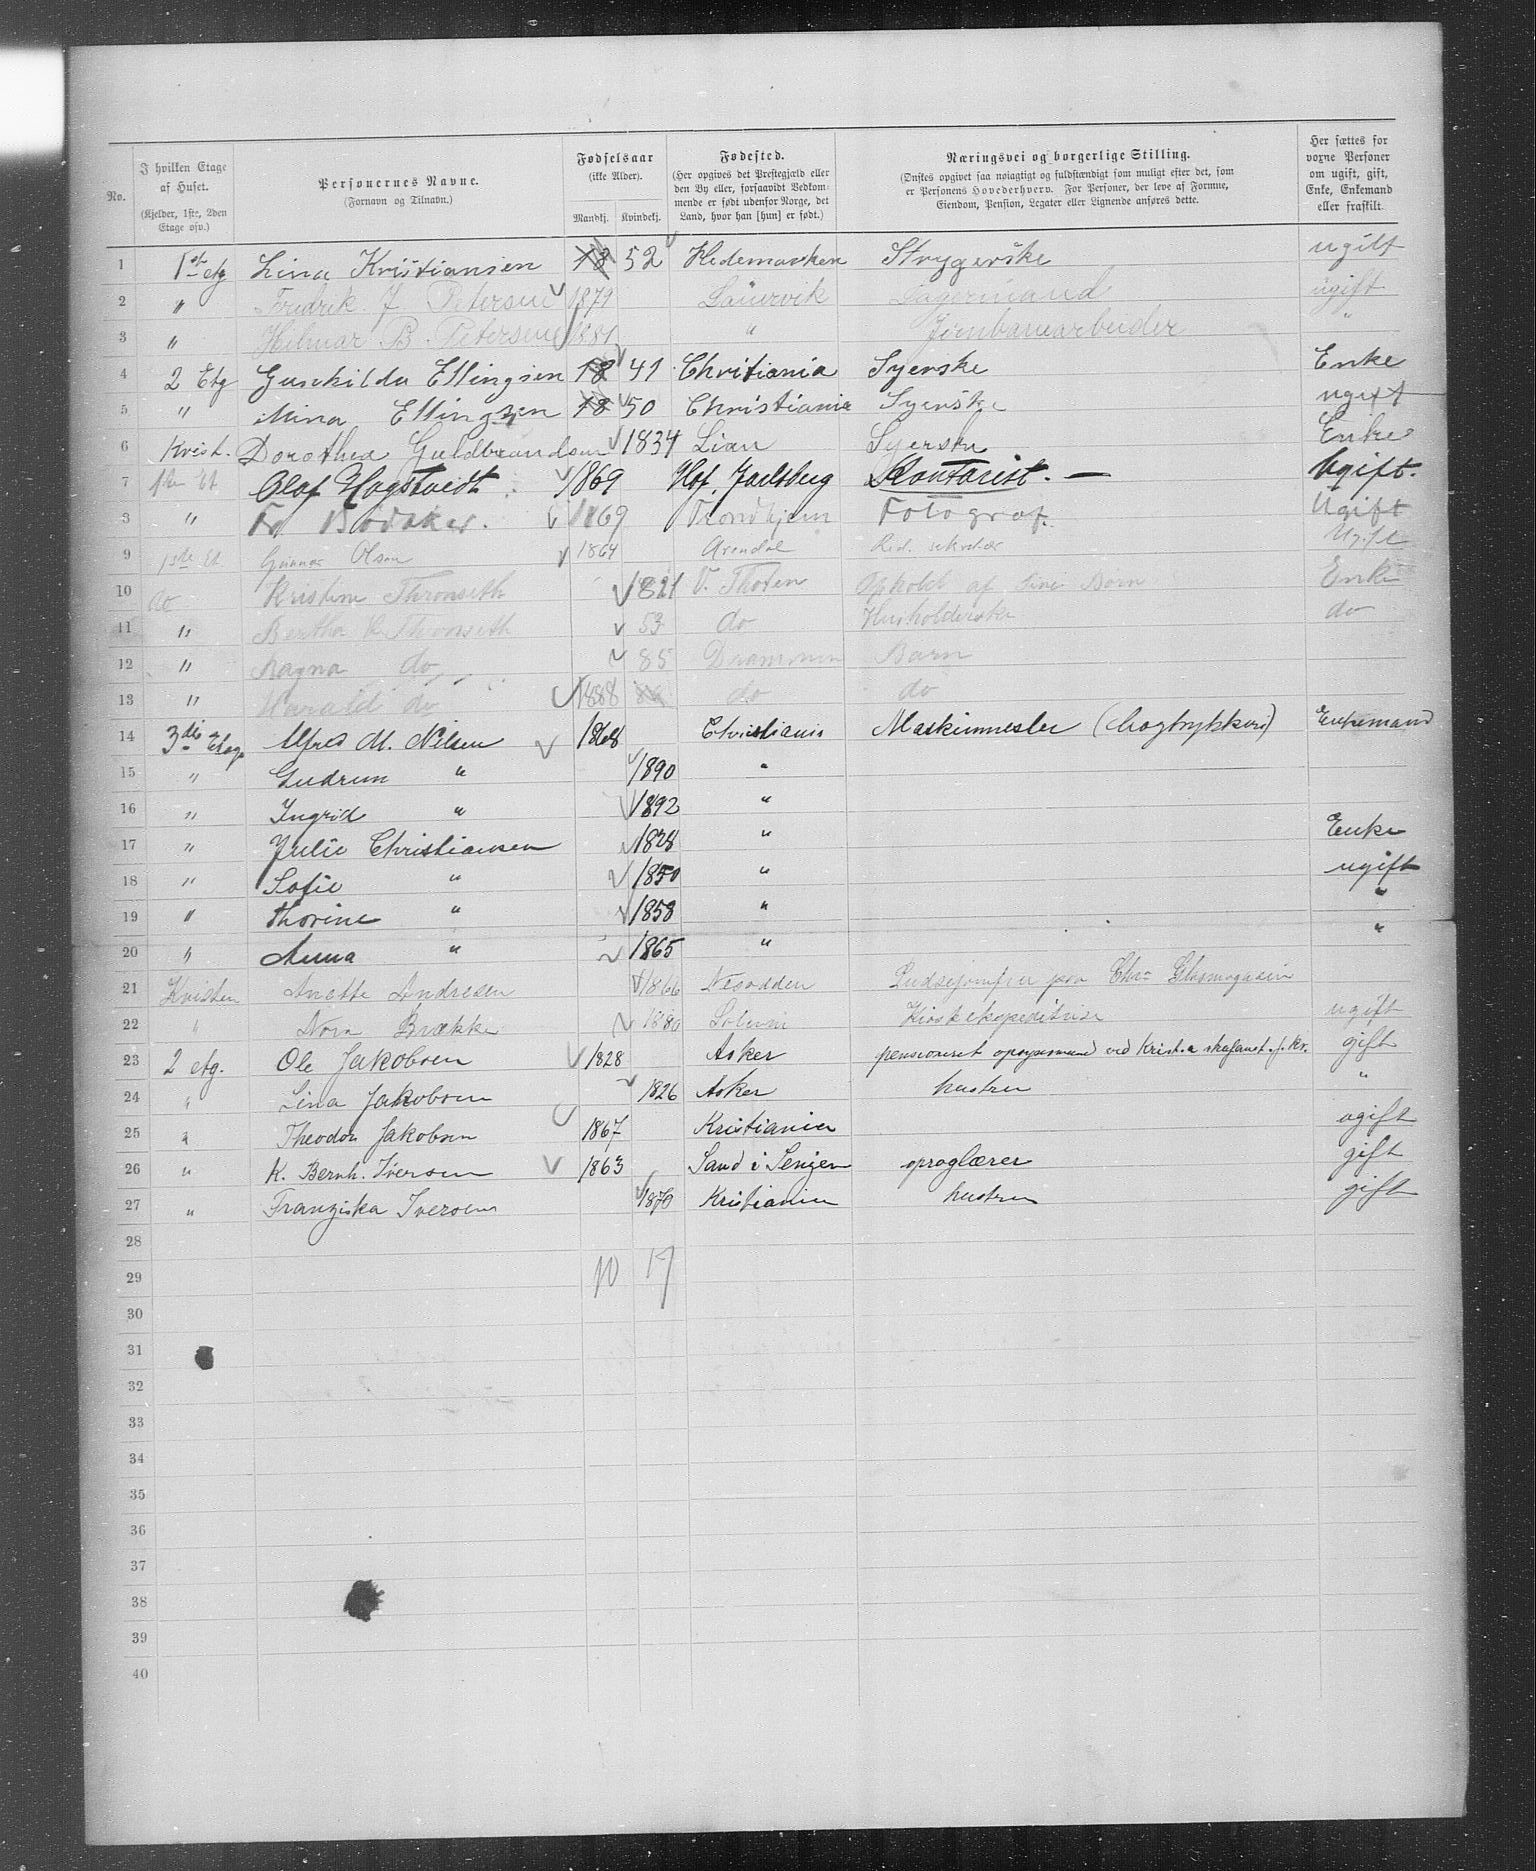 No. | I hvilken Etage af Huset. (Kjelder, 1ste, 2den Etage osv.) | Personernes Navne. (Fornavn og Tilnavn.) | Fødselsaar (ikke Alder). Mandkj. Kvindekj. | Fødested. (Her opgives det Prestegjæld eller den By eller, forsaavidt Vedkommende er født udenfor Norge, det Land, hvor han [hun] er født.) | Næringsvei og borgerlige Stilling. (Ønskes opgivet saa nøiagtigt og fuldstændigt som muligt efter det, som er Personens Hovederhverv. For Personer, der leve af Formue, Eiendom, Pension, Legater eller Lignende anføres dette. | Her sættes for vorne Personer om ugift, gift, Enke, Enkemand eller fraskilt.
1 1ste etg Lina Kristiansen 18 52 Hedemarken Strygerske ugift
2 " Fredrik J Petersen 1879 Laurvik Lagermand ugift
3 " Hilmar B. Petersen 1881 " Jernbanearbeider "
4 2 Etg Gunhilda Ellingsen 18 41 Chritiania Syerske Enke
5 " Mina Ellingsen 18 50 Christiania Syerske ugift
6 Kvist. Dorothea Guldbrandsen 1834 Lian Syerske Enke
7 1ste Et Olaf Hogstvedt. 1869 Hof. Jarlsberg Kontorist. — Ugift.
8 " Fr. Bødtker. 1869 Trondhjem Fotograf. Ugift
9 1ste Et Gunnar Olsen 1864 Arendal Red. sekretær Ugift
10 do Kristine Thronseth 1821 V. Thoten Ophold af sine Børn Enke
11 " Bertha C Thronseth 53 do Husholderske do
12 " Ragna do 85 Drammen Barn
13 " Harald do 1888 do do
14 3die Etage Alfred M. Nilsen 1868 Christiania Maskinmester (bogtrykkeri) Enkemand
15 " Gudrun " 1890 "
16 " Ingrid " 1892 "
17 " Julie Christiansen 1828 " Enke
18 " Sofie " 1850 " ugift
19 " Thorine " 1858 " "
20 " Anna " 1865 " "
21 Kvisten Anette Andresen 1866 Nesodden Pudsejomfru paa Chra Glasmagasin
22 " Nora Brække 1880 Kioskekspeditrise ugift
23 2 etg. Ole Jakobsen 1828 Asker pensioneret opsynsmand ved Krist.a strafanst. f. Kv. gift
24 " Lina Jakobsen 1826 Asker hustru "
25 " Theodor Jakobsen 1867 Kristiania ugift
26 " K. Bernh. Iversen 1863 Sand i Senjen sproglærer gift
27 " Franziska Iversen 1870 Kristiania hustru gift
28
29 10 17
30
31
32
33
34
35
36
37
38
39
40